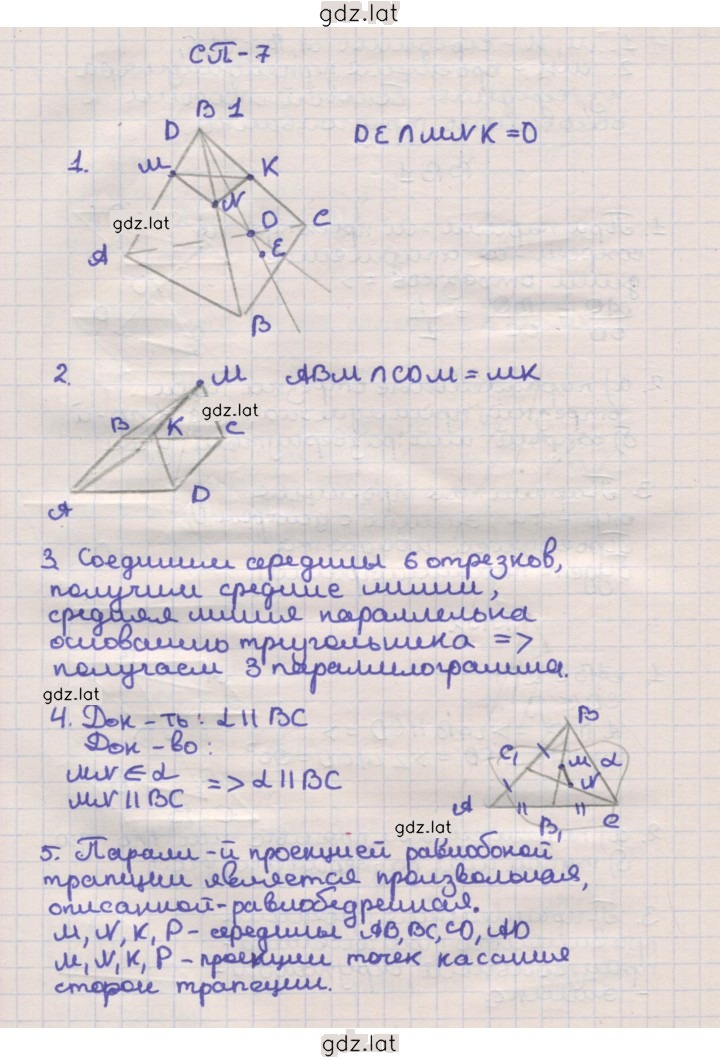 gdz.lat
СП-7
В 1
D
DE ∩ MNK = O
1.
M
K
N
gdz.lat
O
C
A
E
B
2.
M
ABM ∩ CDM = MK
gdz.lat
B
K
C
A
D
3. Соединим середины 6 отрезков,
получим средние линии,
средняя линия параллельна
основанию треугольника =>
получаем 3 параллилограмма.
gdz.lat
4. Док-ть: α || BC
Док-во:
MN ∈ α
MN || BC
=> α || BC
B
C₁
M
α
N
A
B₁
C
gdz.lat
5. Паралл-й проекцией равнобокой
трапеции является произвольная,
описанной-равнобедренная.
M, N, K, P - середины AB, BC, CD, AD
M, N, K, P - проекции точек касания
сторон трапеции.
gdz.lat